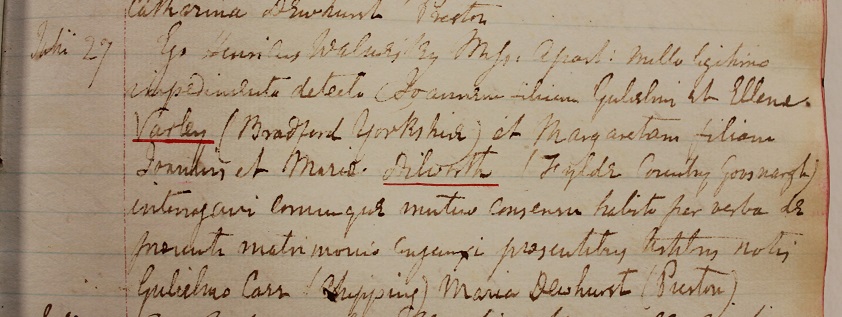 Catharina Dewhurst Preston
Julii 27 Ego Henricus Walmesley Miss: Apost: nullo legitimo
impedimento detecto Joannem filium Gulielmi et Ellenæ
Varley (Bradford Yorkshire) et Margaretam filiam
Joannis et Mariæ Dilworth (Fylde Country Goosnargh)
interrogavi eorumque mutuo consensu habito per verba de
presenti matrimonio conjunxi presentibus testibus notis
Gulielmo Carr (Chipping) Maria Dewhurst (Preston)